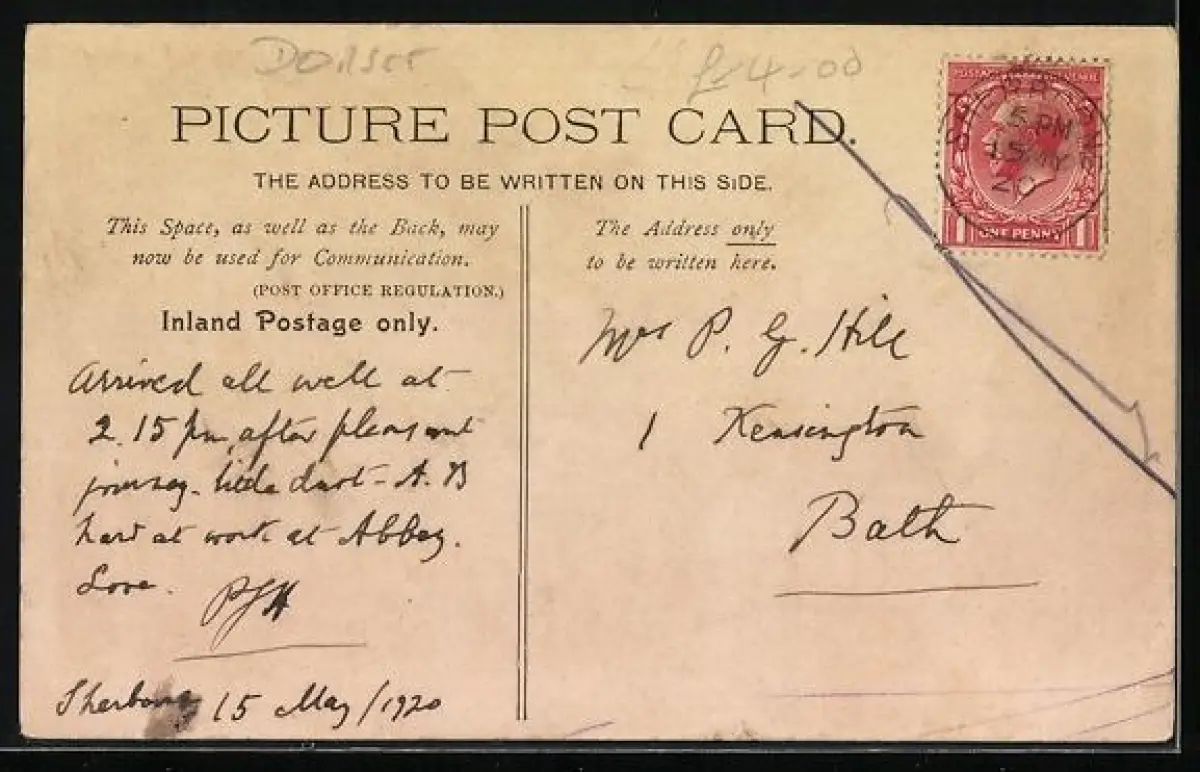 Dorset
£4-00
PICTURE POST CARD.
THE ADDRESS TO BE WRITTEN ON THIS SIDE.
This Space, as well as the Back, may
now be used for Communication.
(POST OFFICE REGULATION.)
Inland Postage only.
Arrived all well at
2.15 pm after pleasant
journey. little dust - A. B
hard at work at Abbey.
Love.
PGH
Sherborne 15 May/1920
The Address only
to be written here.
Mrs P. G. Hill
1 Kensington
Bath
SHERBORNE
5 PM
15 MY
20
POSTAGE REVENUE
1 ONE PENNY 1